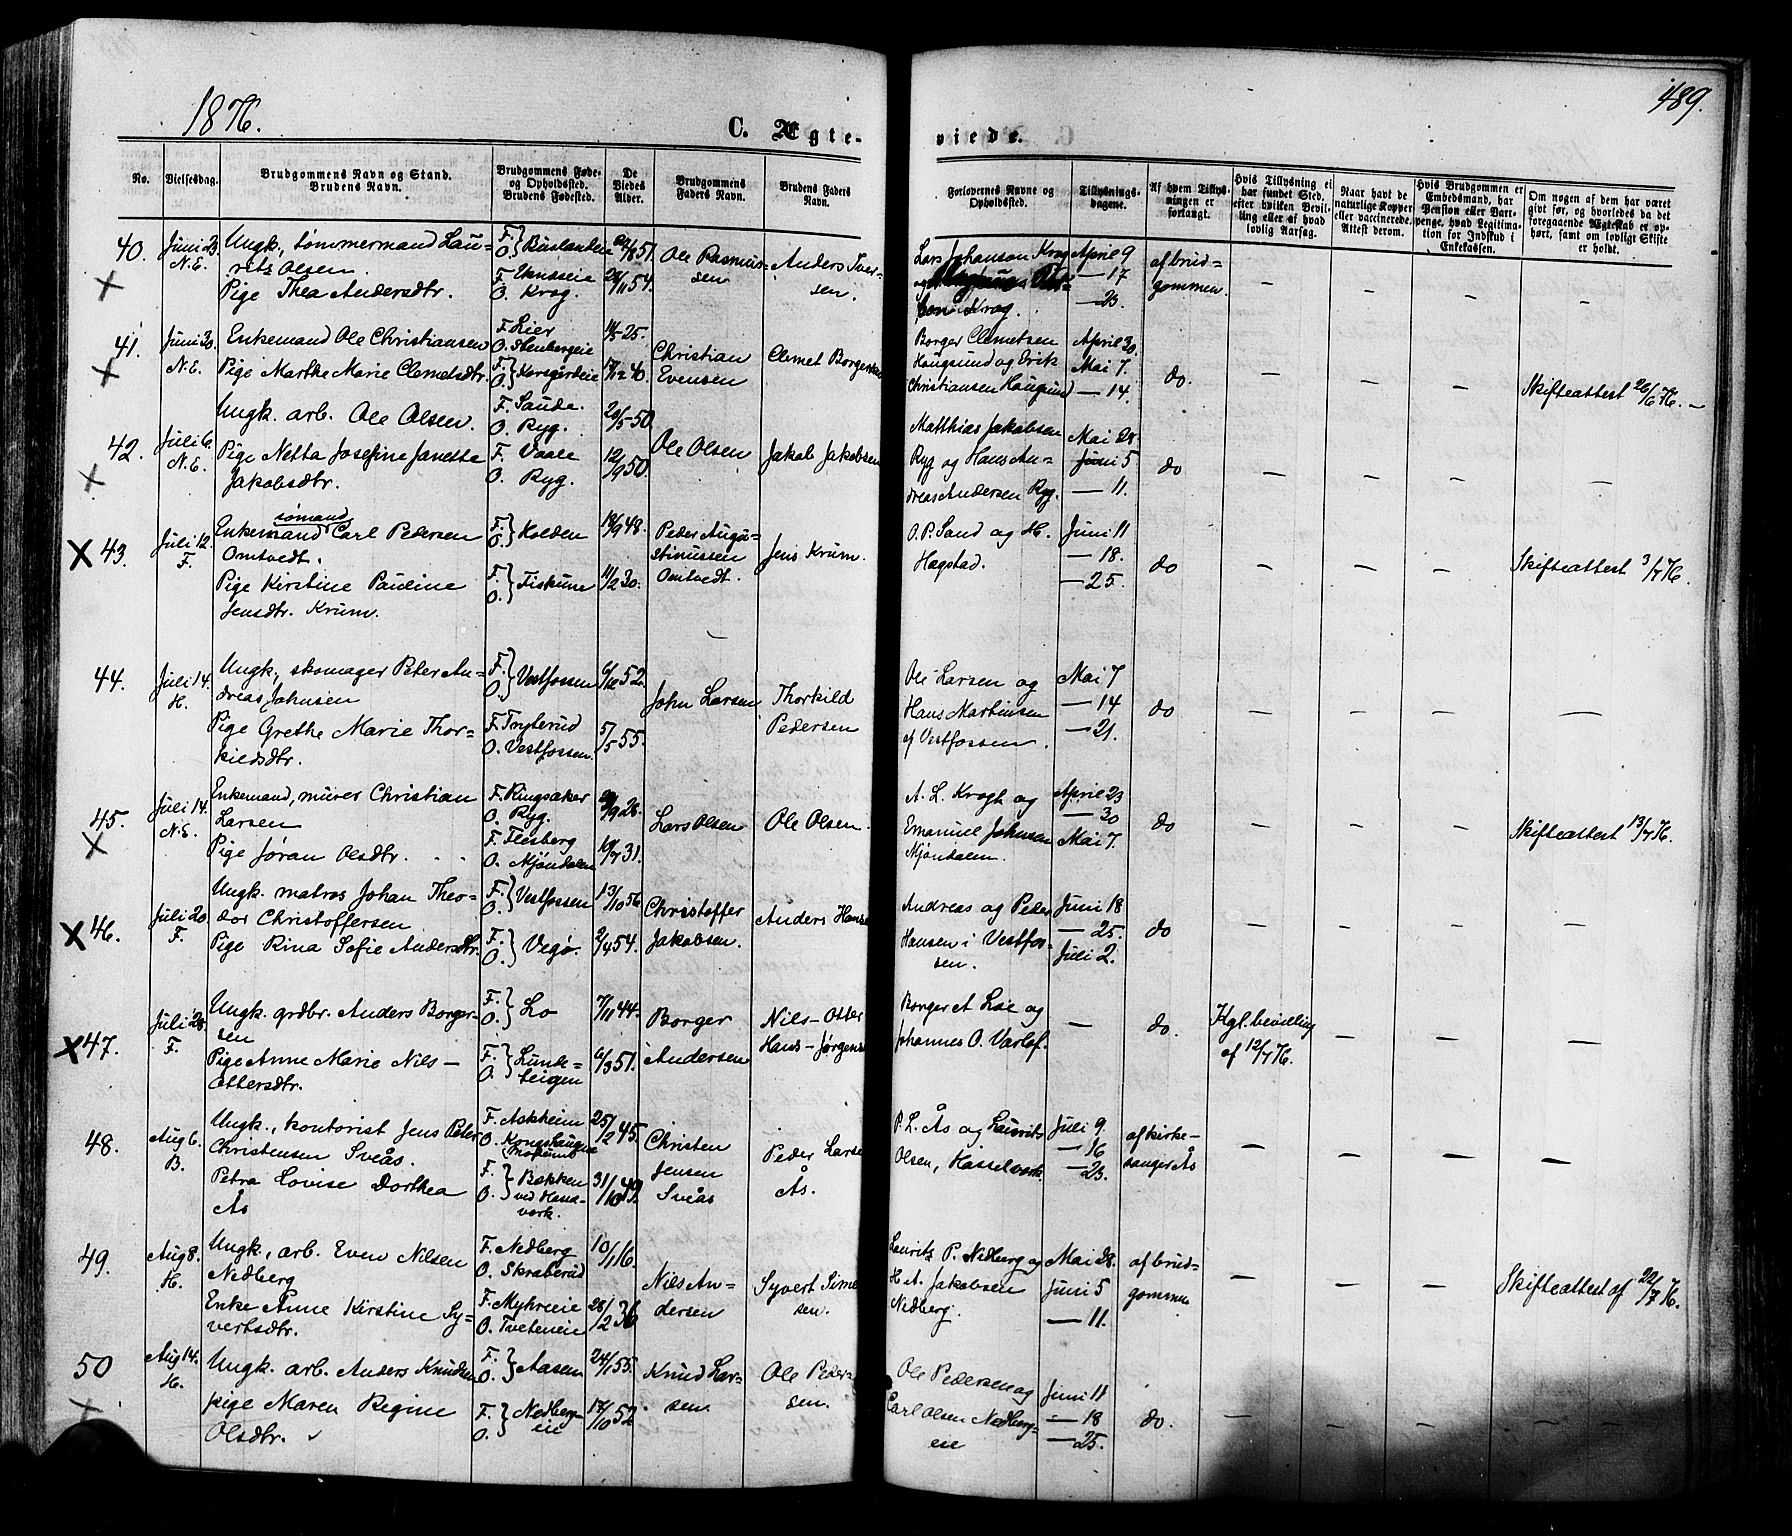 1876.
489.
C. Ægte-
viede.
No.
Vielsesdag.
Brudgommens Navn og Stand.
Brudens Navn.
Brudgommens Føde-
og Opholdsted.
Brudens Fødested.
De
Viedes
Alder.
Brudgommens
Faders Navn.
Brudens Faders
Navn.
Forlovernes Navne og
Opholdsted.
Tillysnings-
dagene.
Af hvem Tillys-
ningen er
forlangt.
Hvis Tillysning ei
har fundet Sted,
efter hvilken Bevil-
ling eller af hvad
lovlig Aarsag.
Naar havt de
naturlige Kopper
eller vaccinerede.
Attest derom.
Hvis Brudgommen er
Embedsmand, har
Pension eller Vart-
penge, hvad Legitima-
tion for Indskud i
Enkekassen.
Om nogen af dem har været
gift før, og hvorledes da det
foregaaende Ægteskab er op-
hørt, samt om lovligt Skifte
er holdt.
40.
Juni 23
N.E.
Ungk., tømmermand Lau-
ritz Olsen.
Pige Thea Andersdtr.
F. O. Buslandeie
F.
O. Krog.
/8 51.
/11 54.
Ole Rasmus-
sen
Anders Iver-
sen.
Lars Johanson Krog
i Krog.
April 9
— 17
— 23.
af brud-
gommen.
41.
Juni 30.
N.E.
Enkemand Ole Christiansen
Pige Marthe Marie Clemetsdtr.
F. Lier
O. Stenbergeie
F. O. Korsgårdeie
11/5 25.
17/12 40.
Christian
Evensen
Clemet Borgersen
Borger Clemetsen
Haugsund og Erik
Christiansen Haugsund
April 30.
Mai 7.
— 14.
do.
Skifteattest 26/6 76. —
42.
Juli 6.
N.E.
Ungk. arb. Ole Olsen.
Pige Netta Josefine Janette
Jakobsdtr.
F. Saude.
O. Ryg.
F. Vaale
O. Ryg.
29/5 50.
12/9 50.
Ole Olsen
Jakob Jakobsen
Matthias Jakobsen
Ryg og Hans An-
dreas Andersen Ryg.
Mai 28.
Juni 5
— 11.
do
43.
Juli 12.
F.
sømand
Enkemand Carl Pedersen
Omtvedt.
Pige Kirstine Pauline
Jensdtr. Krum.
F. O. Kolden
F. O. Fiskum
18/9 48.
11/2 30.
Peder Augu-
stinussen
Omtvedt.
Jens Krum.
O. P. Sand og H.
Hagstad.
Juni 11
— 18.
— 25.
do
Skifteattest 3/7 76.
44.
Juli 14.
H.
Ungk., skomager Peter An-
dreas Johnsen
Pige Grethe Marie Thor-
kildsdtr.
F. O. Vestfossen
F. Tryterud
O. Vestfossen
6/12 52.
5/5 55.
John Larsen
Thorkild
Pedersen
Ole Larsen og
Hans Martinsen
af Vestfossen.
Mai 7
— 14
— 21.
do
45.
Juli 14.
N.E.
Enkemand, murer Christian
Larsen
Pige Jøran Olsdtr.
F. Ringsaker
O. Ryg.
F. Flesberg
O. Mjøndalen
/9 28.
19/7 31.
Lars Olsen
Ole Olsen.
A. L. Krogh og
Emanuel Johnsen
Mjøndalen.
April 23
— 30
Mai 7.
do
Skifteattest 13/7 76.
46.
Juli 20
F.
Ungk. matros Johan Theo-
dor Christoffersen
Pige Rina Sofie Andersdtr.
F. O. Vestfossen
F. O. Vegø.
13/10 56
2/4 54.
Christoffer
Jakobsen.
Anders Hans
Andreas og Peder
Hansen i Vestfos-
sen.
Juni 18
— 25.
Juli 2.
do
47.
Juli 28.
F.
Ungk. grdbr. Anders Borger-
sen
Pige Anne Marie Nils-
Ottersdtr.
F. O. Lo
F. O. Lunde-
teigen
7/11 44.
6/3 51.
Borger
Andersen
Nils-Otter
Hans-Jørgens
Borger A. Loe og
Johannes O. Varlof.
do.
Kgl. bevilling
af 12/7 76.
48.
Aug 6.
B.
Ungk., kontorist Jens Peter
Christensen Sveås.
Petra Lovise Dorthea
Ås
F. Askheim
O. Kongshaugen
Modum
F. O. Bakken
ved Hassel-
værk.
25/2 45.
31/10 49.
Christen
Jensen
Sveås
Peder Larse
Ås.
P. L. Ås og Laurits
Olsen, Hasselværk.
Juli 9.
— 16
— 23.
af kirke-
sanger Ås
49.
Aug 8.
H.
Ungk., arb. Even Nilsen
Nedberg
Enke Anne Kirstine Sy-
vertsdtr.
F. Nedberg
O. Skraberud
F. Myhreeie
O. Tveteneie
10/1 16.
28/2 36
Nils An-
dersen
Syvert Sime
sen.
Lauritz P. Nedberg og
H. A. Jakobsen
Nedberg.
Mai 28.
Juni 5
— 11.
af brud-
gommen
Skifteattest af 22/7 76.
50
Aug 14.
H.
Ungk. arb. Anders Knudsen
pige Maren Regine
Olsdtr.
F. O. Aasen
F. O. Nedberg-
eie
24/1 55.
17/10 52
Knud Lar-
sen.
Ole Peder-
sen.
Ole Pedersen og
Carl Olsen Nedberg-
eie
Juni 11
— 18
— 25.
do.